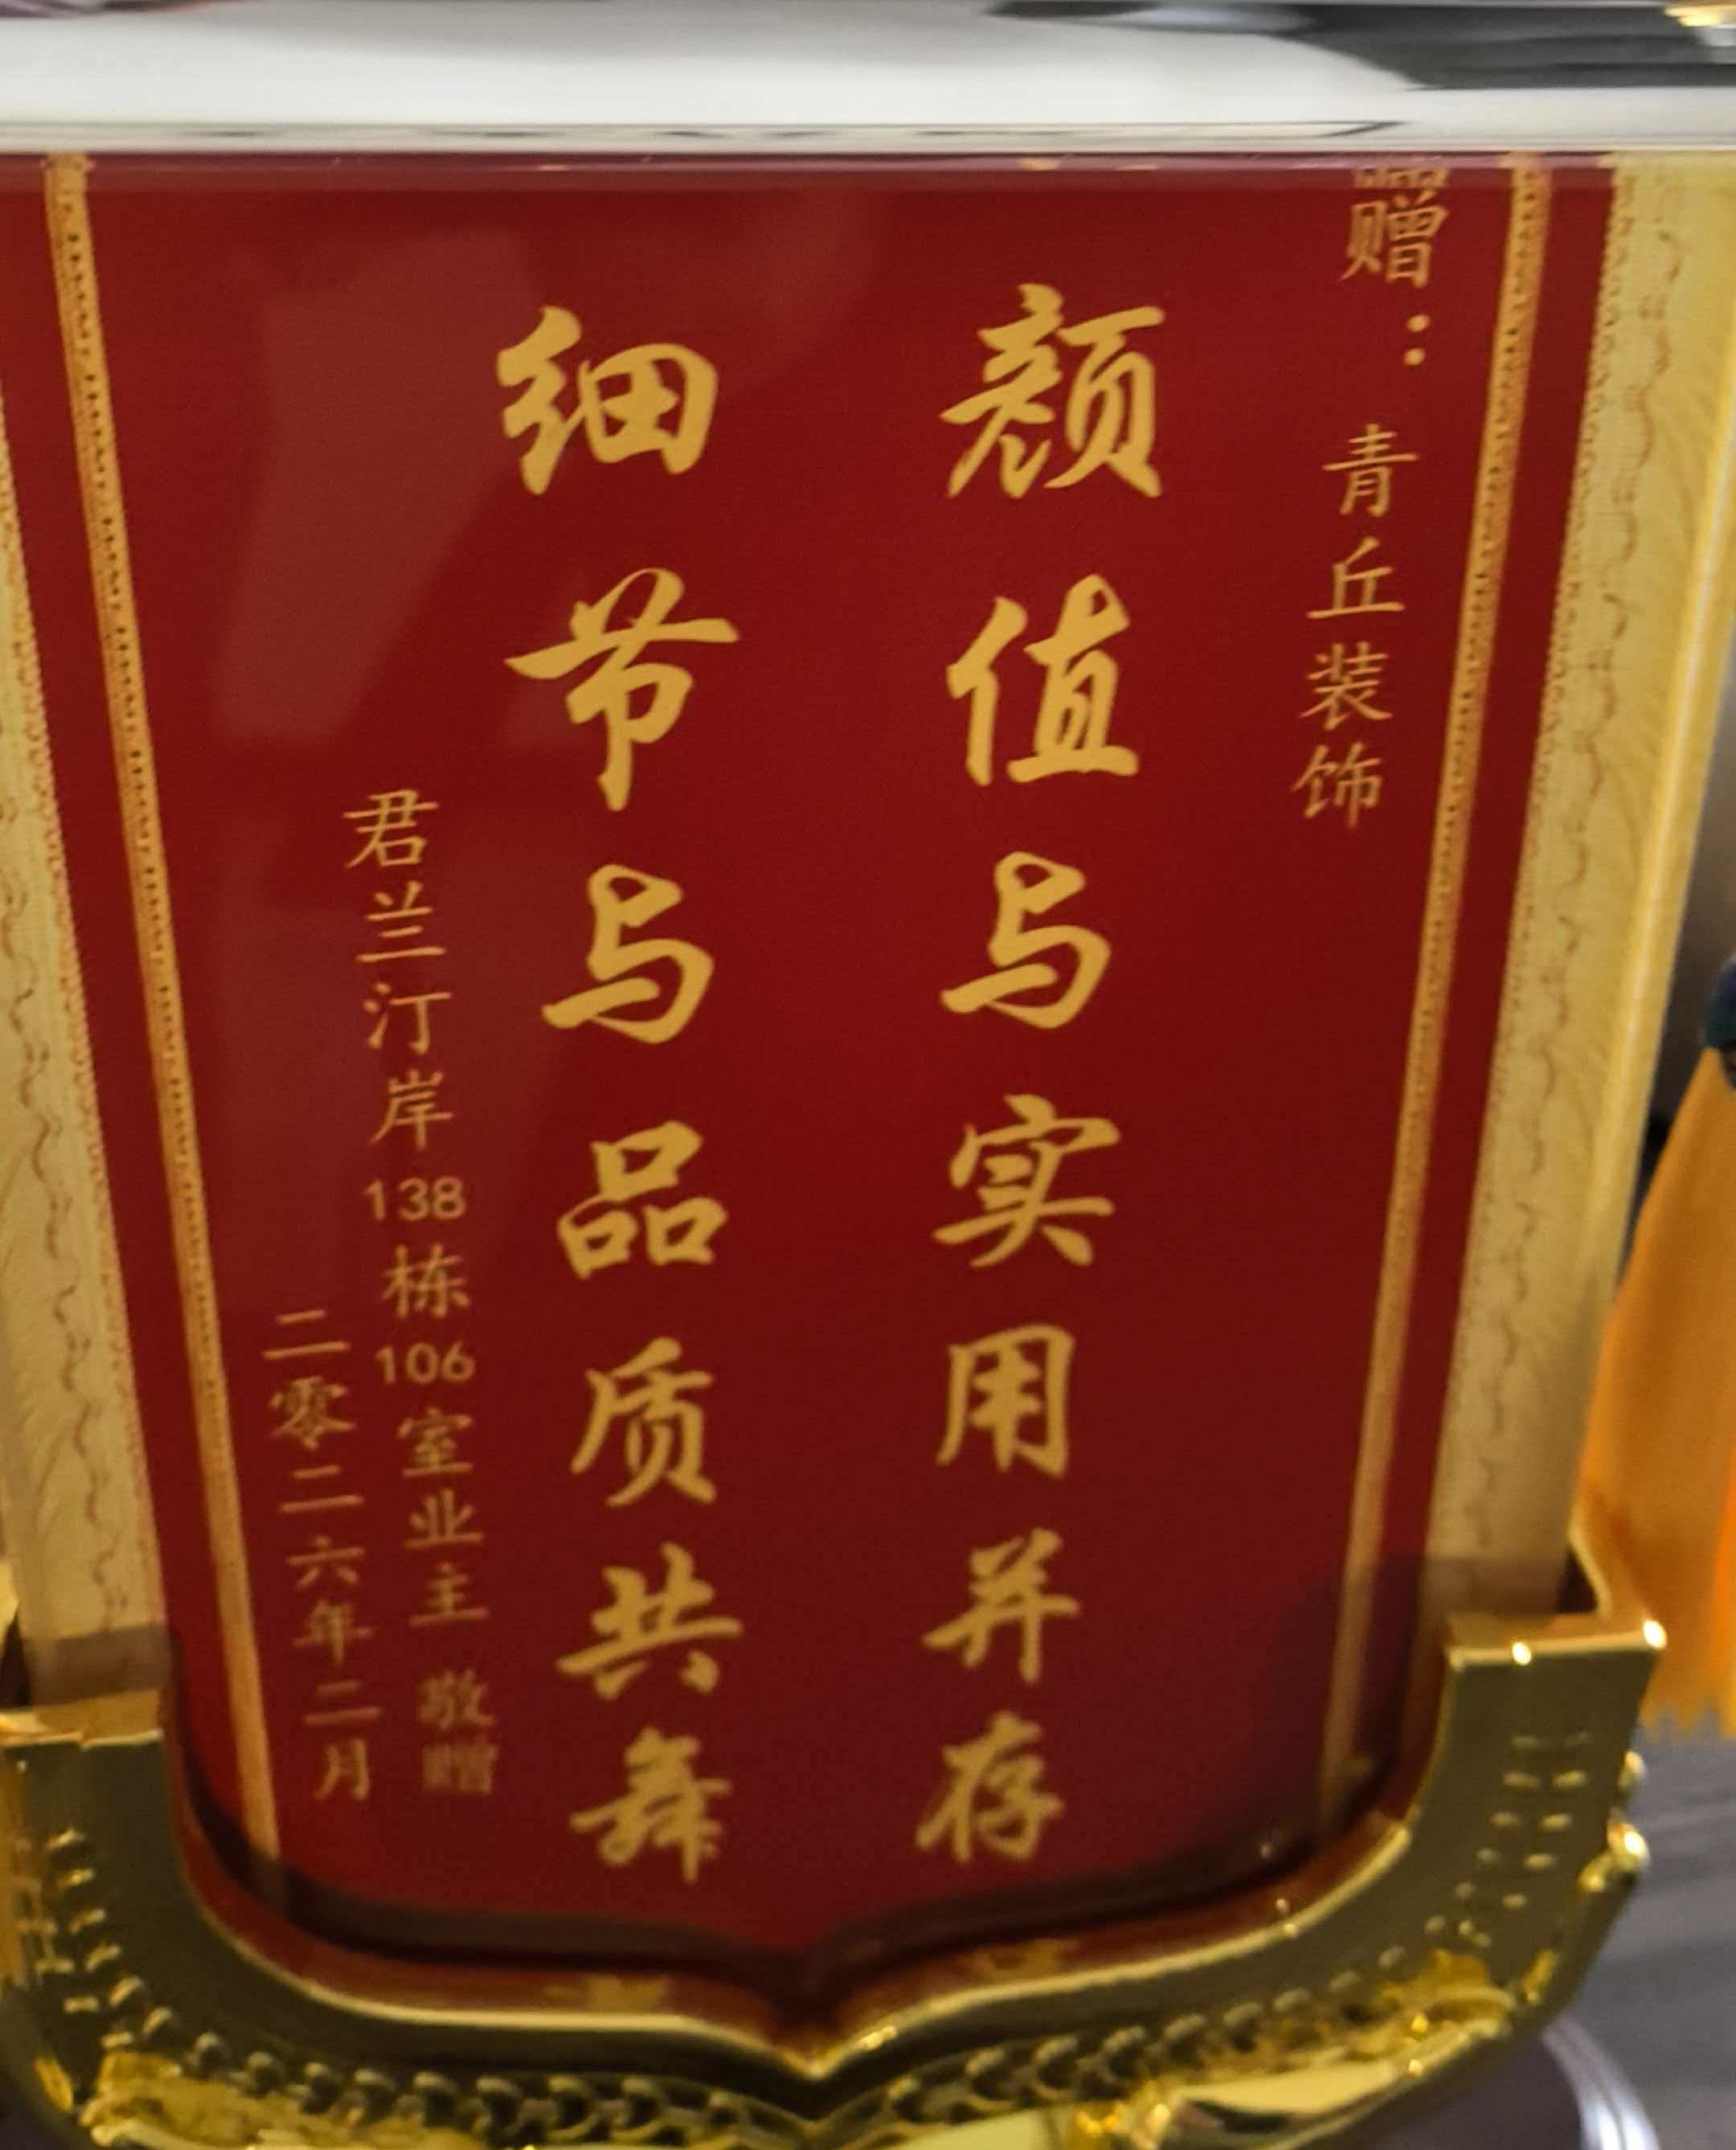 赠：青丘装饰
颜值与实用并存
细节与品质共舞
君兰汀岸138栋106室业主 敬赠
二零二六年二月